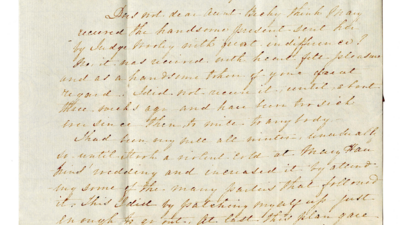 Does not dear Aunt think I may
received the handsome present sent
by Judge with great indifference?
No it was received with heart felt pleasure
and as a handsome token of your great
regard. I did not receive it until about
three weeks ago and have been too sick
ever since then to write to anybody.
I had been my use all winter
so until I took a violent cold at Mary
wedding and increased it by attend-
ing some of the many parties that followed
it. This I did by patching myself up just
enough to go out. At last this plan gave